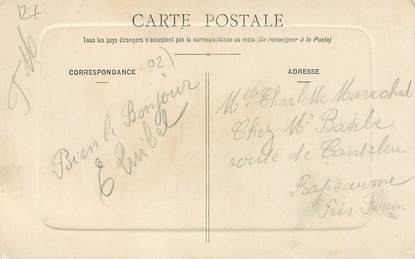 127
CARTE POSTALE
Tous les pays étrangers n'acceptent pas la correspondance au recto (Se renseigner à la Poste)
CORRESPONDANCE
ADRESSE
02)
Bien le Bonjour
Mlle Charlotte Marechal
Chez Mr
route de Canteleu
Bapeaume
Près Rouen